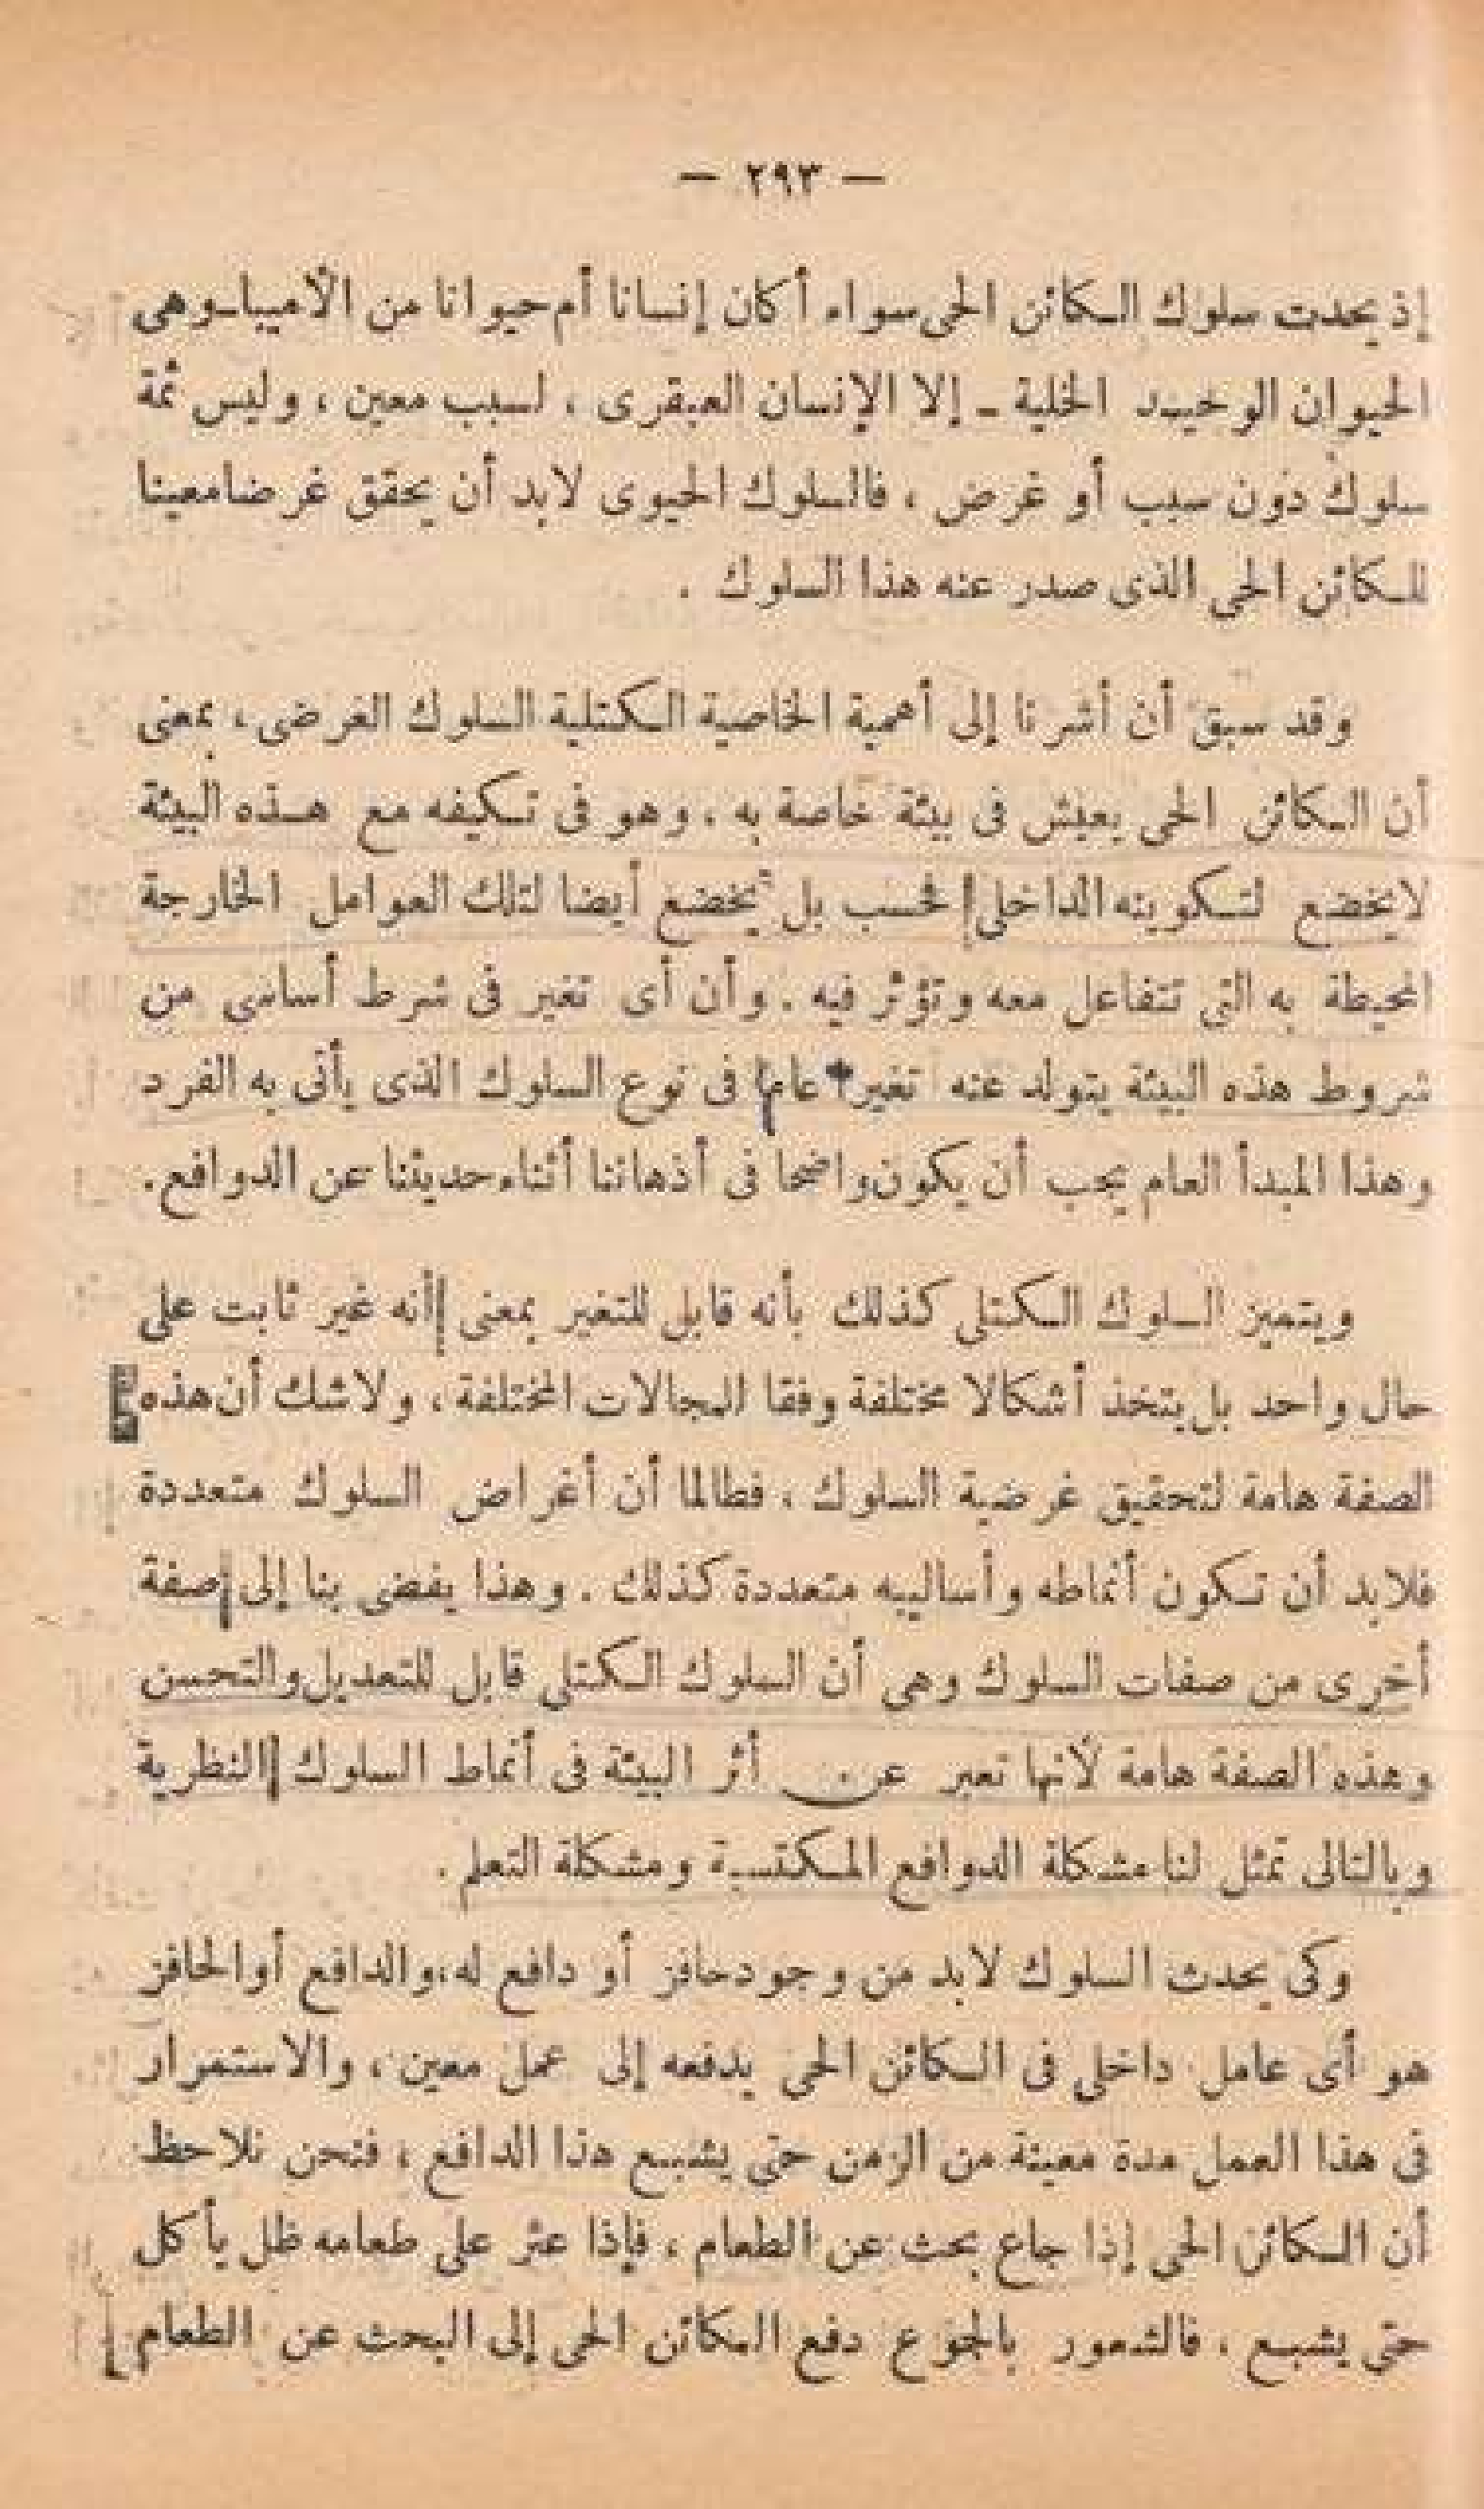 — ٢٩٣ —
إذ يحدث سلوك الكائن الحى سواء أكان إنسانا أم حيوانا من الأميبا ـ وهى
الحيوان الوحيد الخلية ـ إلا الإنسان العبقرى ، لسبب معين ، وليس ثمة
سلوك دون سبب أو غرض ، فالسلوك الحيوى لابد أن يحقق غرضا معينا
للكائن الحى الذى صدر عنه هذا السلوك .
وقد سبق أن أشرنا إلى أهمية الخاصية الكتلية السلوك الغرضى ، بمعنى
أن الكائن الحى يعيش فى بيئة خاصة به ، وهو فى تكيفه مع هذه البيئة
لا يخضع لتكوينه الداخلى فحسب بل يخضع أيضا لتلك العوامل الخارجة
المحيطة به التى تتفاعل معه وتؤثر فيه . وأن أى تغير فى شرط أساسى من
شروط هذه البيئة يتولد عنه تغير عام فى نوع السلوك الذى يأتى به الفرد
وهذا المبدأ العام يجب أن يكون واضحا فى أذهاننا أثناء حديثنا عن الدوافع .
ويتميز السلوك الكتلى كذلك بأنه قابل للتغير بمعنى أنه غير ثابت على
حال واحد بل يتخذ أشكالا مختلفة وفقا للمجالات المختلفة ، ولا شك أن هذه
الصفة هامة لتحقيق غرضية السلوك ، فطالما أن أغراض السلوك متعددة
فلابد أن تكون أنماطه وأساليبه متعددة كذلك . وهذا يفضى بنا إلى صفة
أخرى من صفات السلوك وهى أن السلوك الكتلى قابل للتعديل والتحسن
وهذه الصفة هامة لأنها تعبر عن أثر البيئة فى أنماط السلوك النظرية
وبالتالى تمثل لنا مشكلة الدوافع المكتسبة ومشكلة التعلم .
وكى يحدث السلوك لابد من وجود حافز أو دافع له ، والدافع أو الحافز
هو أى عامل داخلى فى الكائن الحى يدفعه إلى عمل معين ، والاستمرار
فى هذا العمل مدة معينة من الزمن حتى يشبع هذا الدافع ، فنحن نلاحظ
أن الكائن الحى إذا جاع بحث عن الطعام ، فإذا عثر على طعامه ظل يأكل
حتى يشبع ، فالشعور بالجوع دفع الكائن الحى إلى البحث عن الطعام